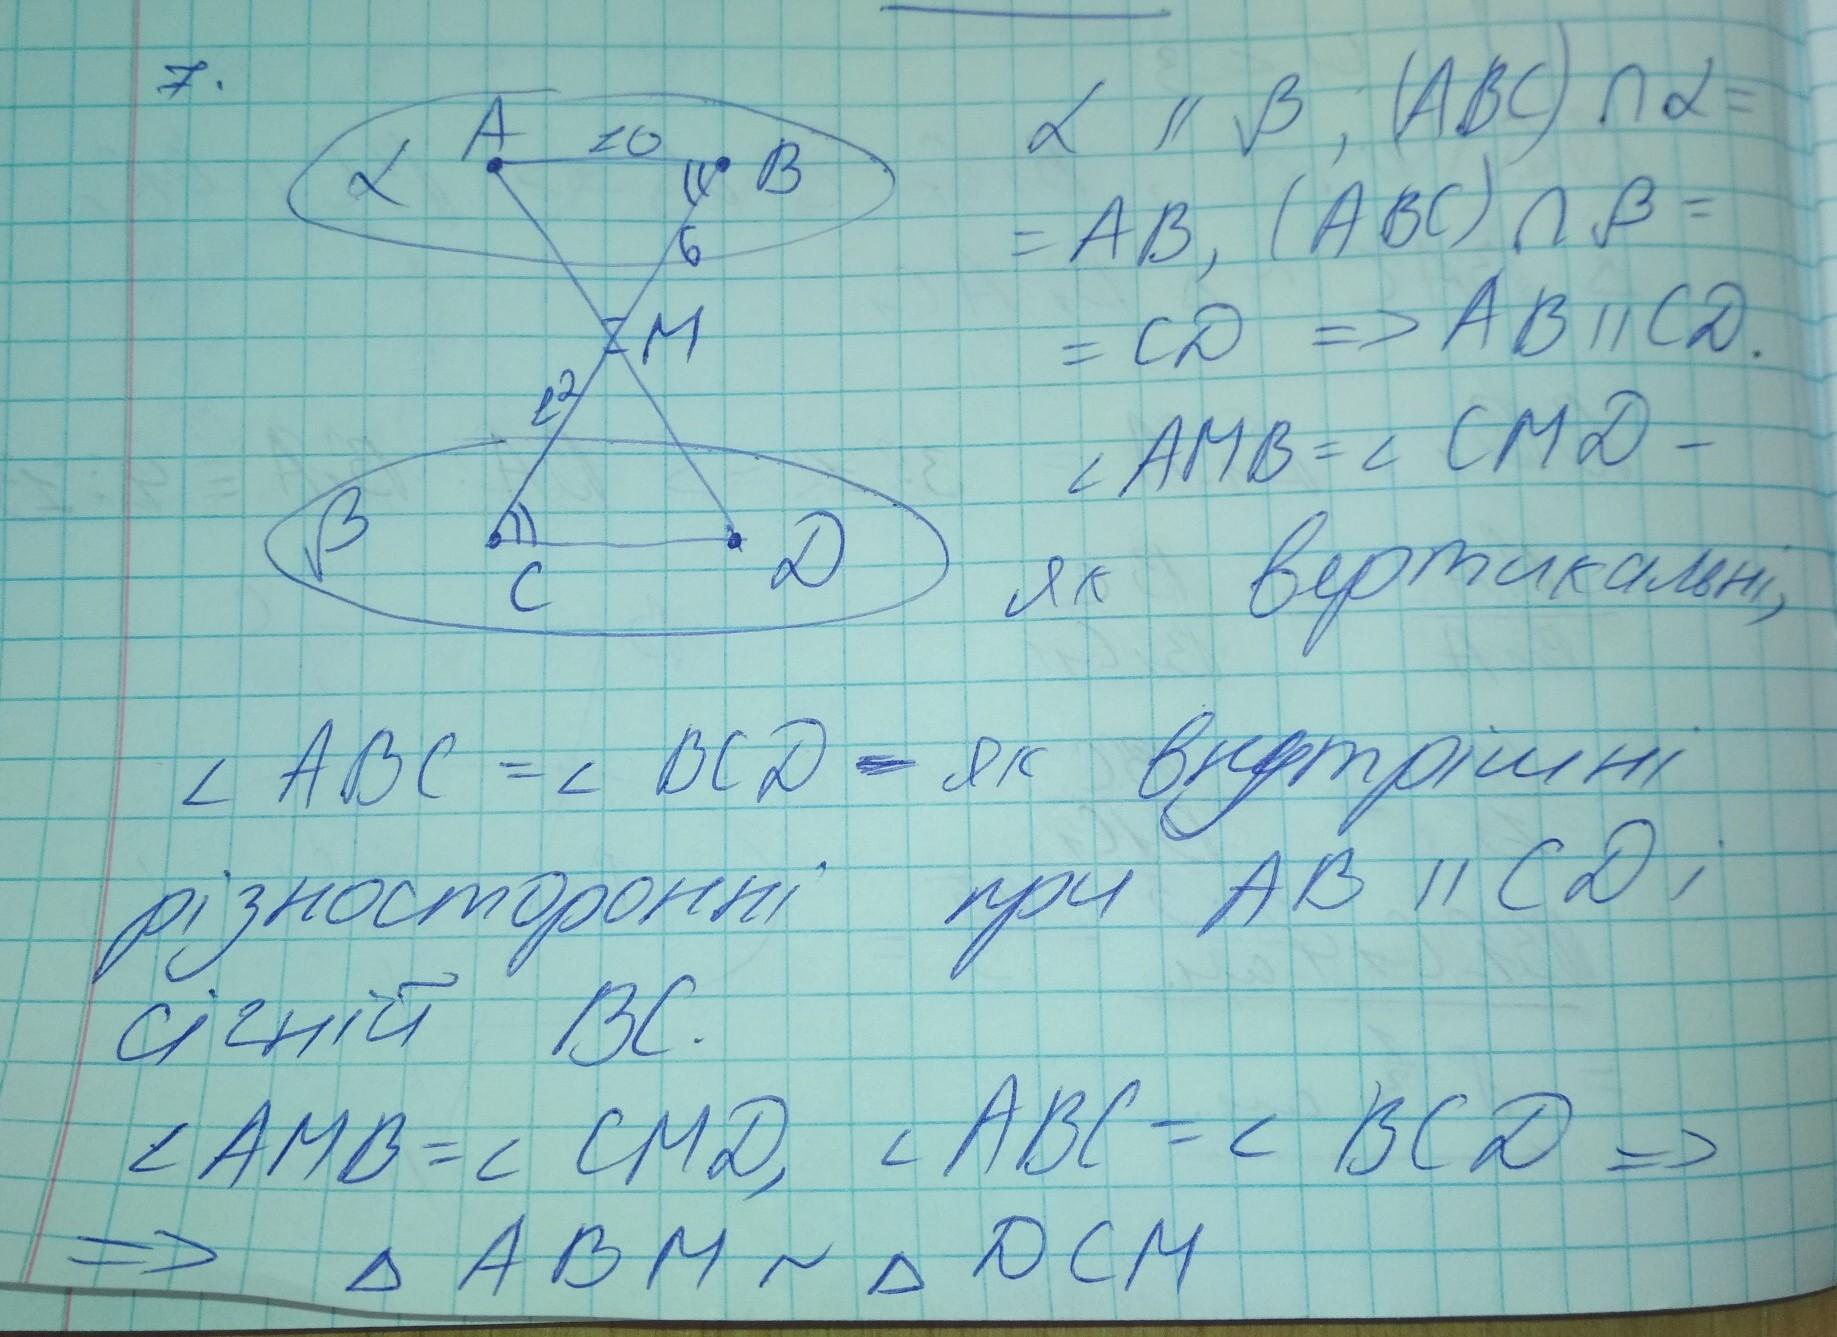 7.
A 10 B
α
6
M
12
β
C D
α || β, (ABC) ∩ α =
= AB, (ABC) ∩ β =
= CD => AB || CD.
∠ AMB = ∠ CMD -
як вертикальні,
∠ ABC = ∠ BCD - як внутрішні
різносторонні при AB || CD і
січній BC.
∠ AMB = ∠ CMD, ∠ ABC = ∠ BCD =>
=> △ ABM ~ △ DCM